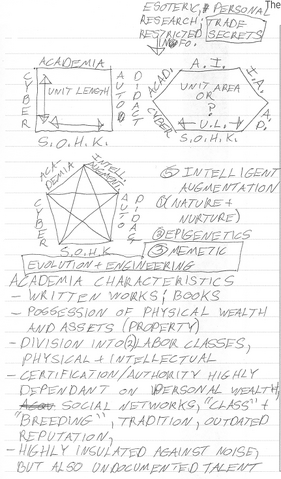 The
ESOTERIC, & PERSONAL
RESEARCH; TRADE
RESTRICTED SECRETS
INFO.
ACADEMIA
CYBER
UNIT LENGTH
AUTO
DIDACT
S.O.H.K.
A.I.
ACAD.
I.A.
UNIT AREA
OR
?
CYBER
U.L.
A.D.
S.O.H.K.
ACADEMIA
INTELL.
AUGMENT.
CYBER
AUTO
DIDAC
S.O.H.K.
INTELLIGENT
AUGMENTATION
① (NATURE +
NURTURE)
② EPIGENETICS
③ MEMETIC
EVOLUTION + ENGINEERING
ACADEMIA CHARACTERISTICS
- WRITTEN WORKS; BOOKS
- POSSESSION OF PHYSICAL WEALTH
AND ASSETS (PROPERTY)
- DIVISION INTO ② LABOR CLASSES,
PHYSICAL + INTELLECTUAL
- CERTIFICATION/AUTHORITY HIGHLY
DEPENDANT ON PERSONAL WEALTH,
SOCIAL NETWORKS, "CLASS" +
"BREEDING", TRADITION, OUTDATED
REPUTATION,
- HIGHLY INSULATED AGAINST NOISE,
BUT ALSO UNDOCUMENTED TALENT